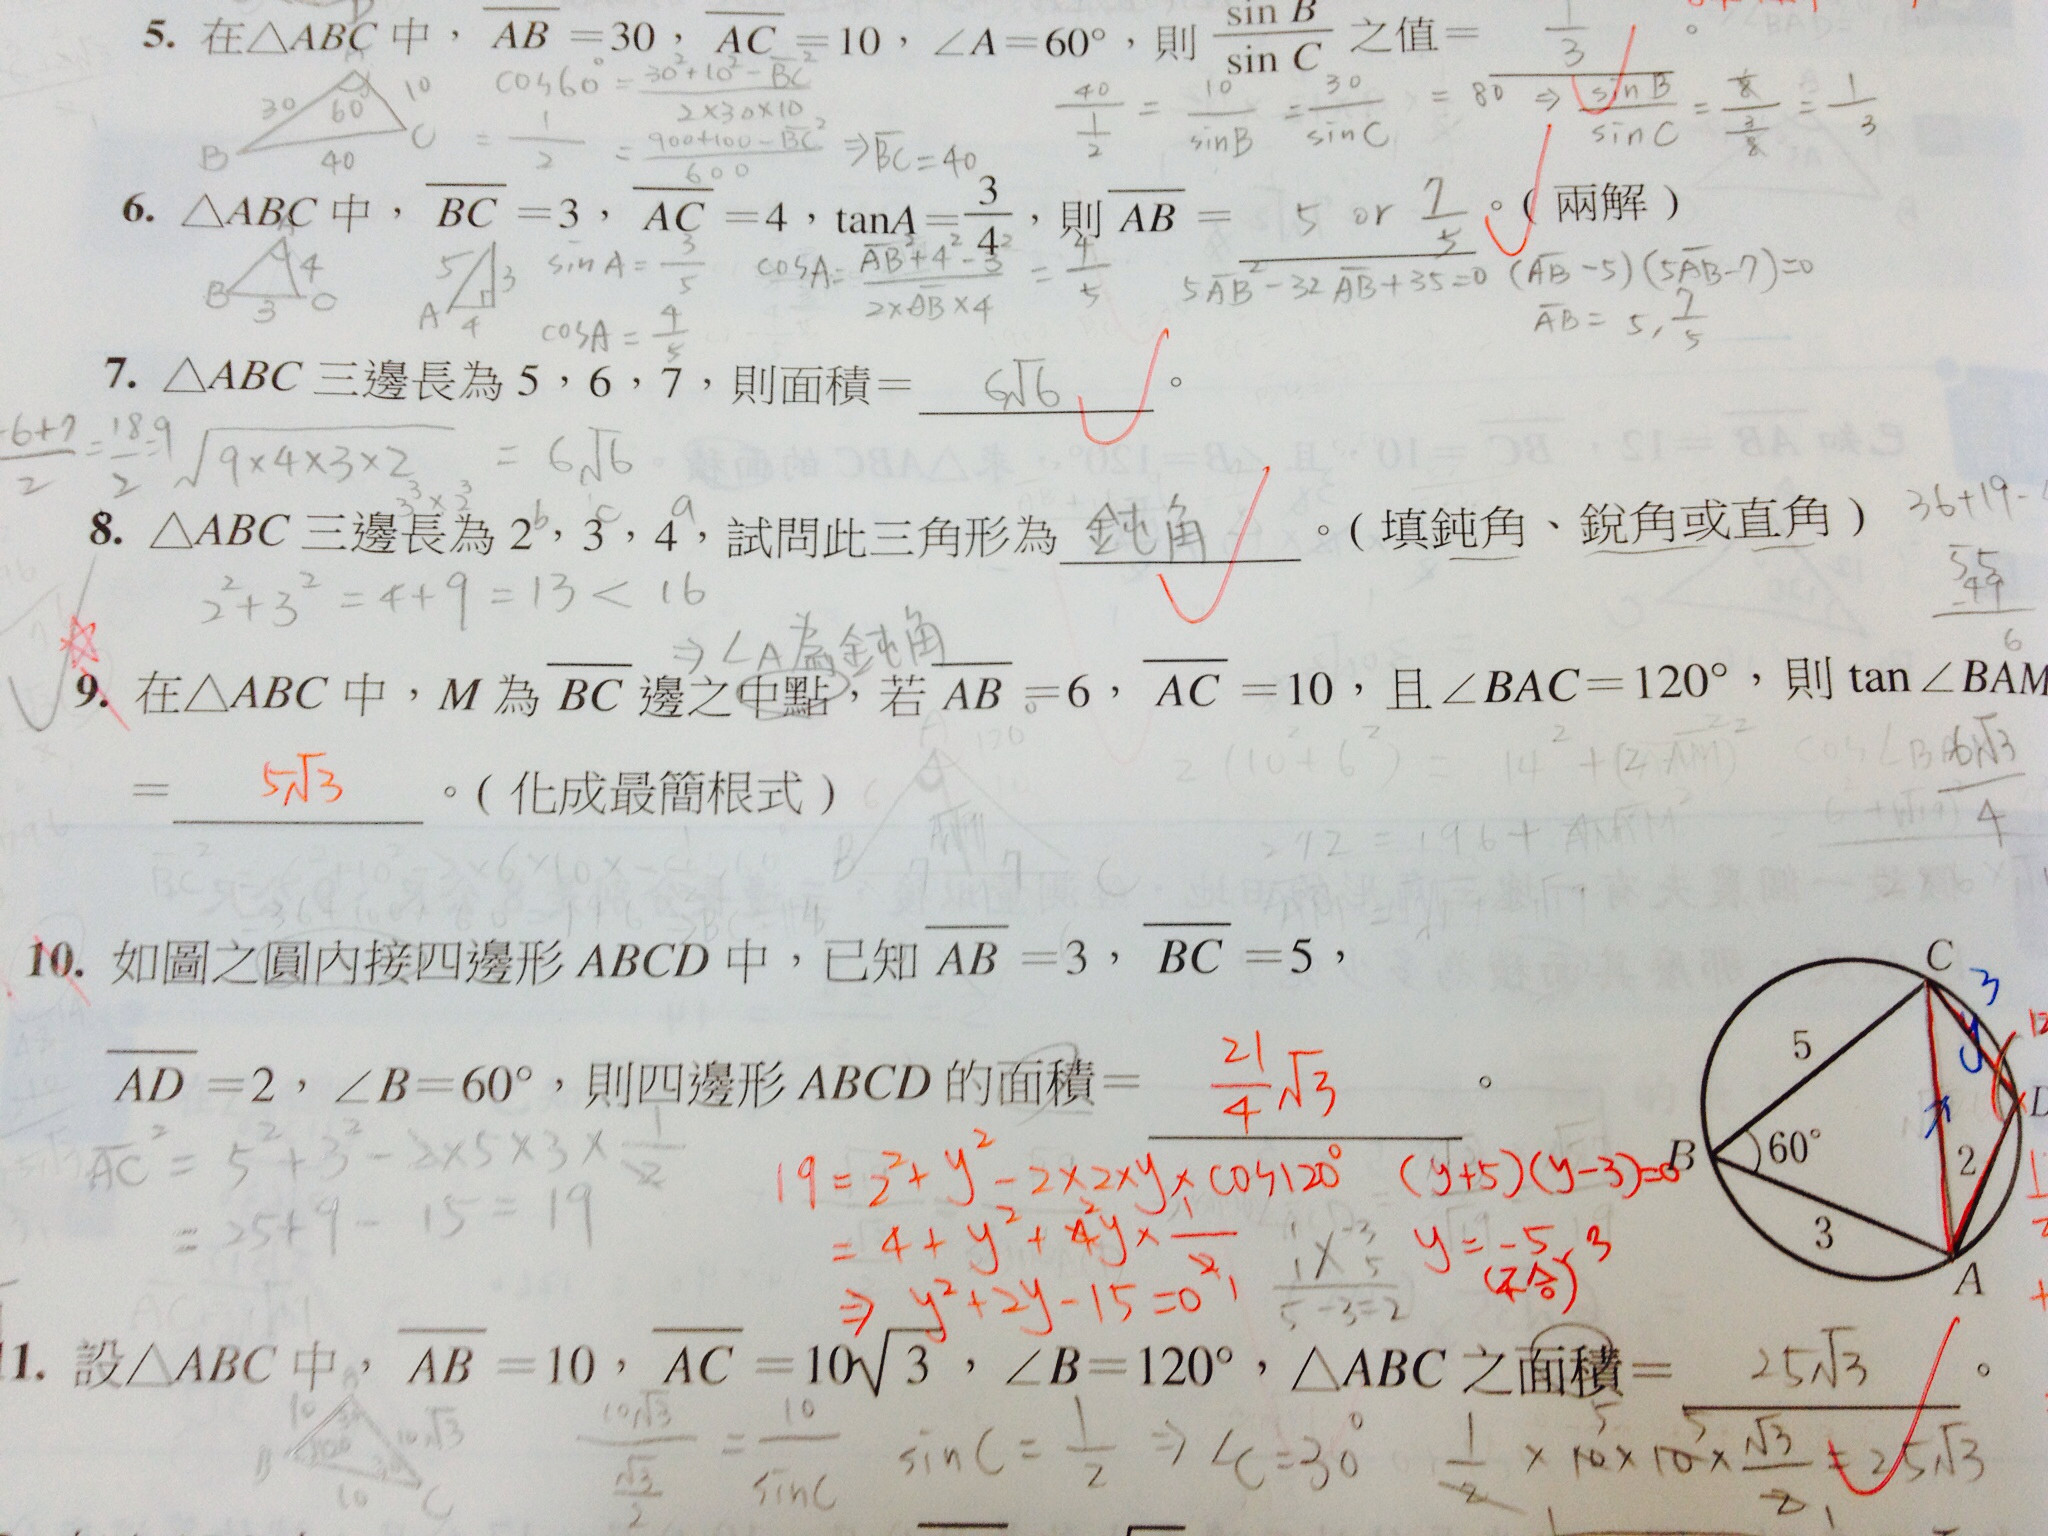 5. 在△ABC中，AB=30，AC=10，∠A=60°，則 sin B/sin C 之值= 1/3 。
30 60° 10 B 40 C
cos60° = (30²+10²-BC²)/(2×30×10)
= 1/2 = (900+100-BC²)/600 ⇒ BC=40
40/(1/2) = 10/sinB = 30/sinC = 80 ⇒ sinB/sinC = (1/8)/(3/8) = 1/3
6. △ABC中，BC=3，AC=4，tanA=3/4，則 AB= 5 or 7/5 。(兩解)
A B 4 3 C
5 3 A 4
sinA = 3/5
cosA = 4/5
cosA = (AB²+4²-3²)/(2×AB×4) = 4/5
5AB²-32AB+35=0 (AB-5)(5AB-7)=0
AB = 5, 7/5
7. △ABC三邊長為5，6，7，則面積= 6√6 。
+6+7/2 = 18/2 = 9 √(9×4×3×2) = 6√6
8. △ABC三邊長為2，3，4，試問此三角形為 鈍角 。(填鈍角、銳角或直角)
b c a
2²+3² = 4+9 = 13 < 16
⇒ ∠A為鈍角
36+19-
55
-49
6
9. 在△ABC中，M為BC邊之中點，若AB=6，AC=10，且∠BAC=120°，則tan∠BAM
= 5√3 。(化成最簡根式)
2(10²+6²) = 14²+(2AM)²
6√3/4
10. 如圖之圓內接四邊形ABCD中，已知AB=3，BC=5，
AD=2，∠B=60°，則四邊形ABCD的面積= 21/4 √3 。
AC² = 5²+3²-2×5×3×1/2
= 25+9-15 = 19
19 = 2²+y²-2×2×y×cos120°
= 4+y²+4y×1/2
⇒ y²+2y-15=0
(y+5)(y-3)=0
y = -5, 3
(不合)
1 -3
1 5
5-3=2
C 3 y 5 x D B 60° 2 3 A
11. 設△ABC中，AB=10，AC=10√3，∠B=120°，△ABC之面積= 25√3 。
10 10√3 B 120 10 C
10√3/(√3/2) = 10/sinC sinC = 1/2 ⇒ ∠C=30° 1/2×10×10×√3/2 = 25√3